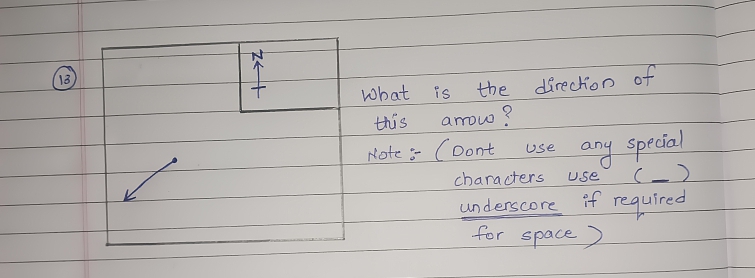 13
N
What is the direction of
this arrow?
Note :- (Dont use any special
characters use (_)
underscore if required
for space)